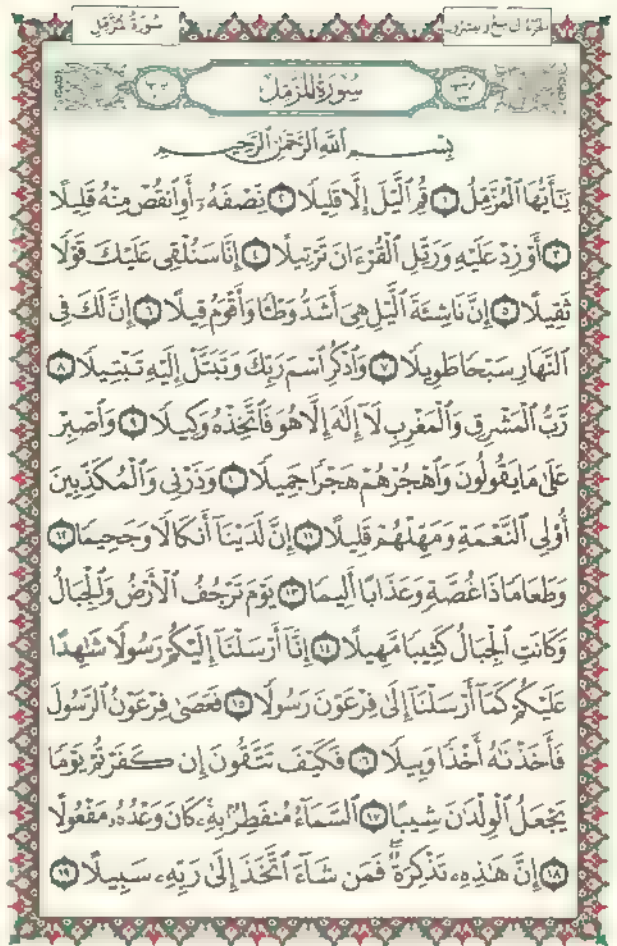 سُورَةُ المُزَّمِّلِ
سُورَةُ المُزَّمِّلِ
بِسْمِ ٱللَّهِ ٱلرَّحْمَٰنِ ٱلرَّحِيمِ
يَٰٓأَيُّهَا ٱلْمُزَّمِّلُ ١ قُمِ ٱلَّيْلَ إِلَّا قَلِيلًا ٢ نِّصْفَهُۥٓ أَوِ ٱنقُصْ مِنْهُ قَلِيلًا
٣ أَوْ زِدْ عَلَيْهِ وَرَتِّلِ ٱلْقُرْءَانَ تَرْتِيلًا ٤ إِنَّا سَنُلْقِى عَلَيْكَ قَوْلًا
ثَقِيلًا ٥ إِنَّ نَاشِئَةَ ٱلَّيْلِ هِىَ أَشَدُّ وَطْـًٔا وَأَقْوَمُ قِيلًا ٦ إِنَّ لَكَ فِى
ٱلنَّهَارِ سَبْحًا طَوِيلًا ٧ وَٱذْكُرِ ٱسْمَ رَبِّكَ وَتَبَتَّلْ إِلَيْهِ تَبْتِيلًا ٨
رَّبُّ ٱلْمَشْرِقِ وَٱلْمَغْرِبِ لَآ إِلَٰهَ إِلَّا هُوَ فَٱتَّخِذْهُ وَكِيلًا ٩ وَٱصْبِرْ
عَلَىٰ مَا يَقُولُونَ وَٱهْجُرْهُمْ هَجْرًا جَمِيلًا ١٠ وَذَرْنِى وَٱلْمُكَذِّبِينَ
أُو۟لِى ٱلنَّعْمَةِ وَمَهِّلْهُمْ قَلِيلًا ١١ إِنَّ لَدَيْنَآ أَنكَالًا وَجَحِيمًا ١٢
وَطَعَامًا ذَا غُصَّةٍ وَعَذَابًا أَلِيمًا ١٣ يَوْمَ تَرْجُفُ ٱلْأَرْضُ وَٱلْجِبَالُ
وَكَانَتِ ٱلْجِبَالُ كَثِيبًا مَّهِيلًا ١٤ إِنَّآ أَرْسَلْنَآ إِلَيْكُمْ رَسُولًا شَٰهِدًا
عَلَيْكُمْ كَمَآ أَرْسَلْنَآ إِلَىٰ فِرْعَوْنَ رَسُولًا ١٥ فَعَصَىٰ فِرْعَوْنُ ٱلرَّسُولَ
فَأَخَذْنَٰهُ أَخْذًا وَبِيلًا ١٦ فَكَيْفَ تَتَّقُونَ إِن كَفَرْتُمْ يَوْمًا
يَجْعَلُ ٱلْوِلْدَٰنَ شِيبًا ١٧ ٱلسَّمَآءُ مُنفَطِرٌۢ بِهِۦ كَانَ وَعْدُهُۥ مَفْعُولًا
١٨ إِنَّ هَٰذِهِۦ تَذْكِرَةٌ فَمَن شَآءَ ٱتَّخَذَ إِلَىٰ رَبِّهِۦ سَبِيلًا ١٩